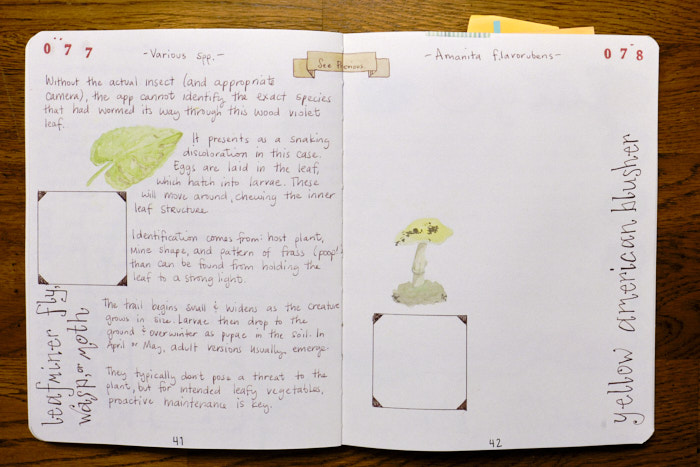 077
- Various spp. -
See Previous
Without the actual insect (and appropriate
camera), the app cannot identify the exact species
that had wormed its way through this wood violet
leaf.
It presents as a snaking
discoloration in this case.
Eggs are laid in the leaf,
which hatch into larvae. These
will move around, chewing the inner
leaf structure.
Identification comes from: host plant,
mine shape, and pattern of frass (poop!)
than can be found from holding the
leaf to a strong light.
The trail begins small & widens as the creature
grows in size. Larvae then drop to the
ground & overwinter as pupae in the soil. In
April or May, adult versions usually emerge.
They typically don't pose a threat to the
plant, but for intended leafy vegetables,
proactive maintenance is key.
leafminer fly,
wasp, or moth
41
- Amanita flavorubens -
078
yellow american blusher
42